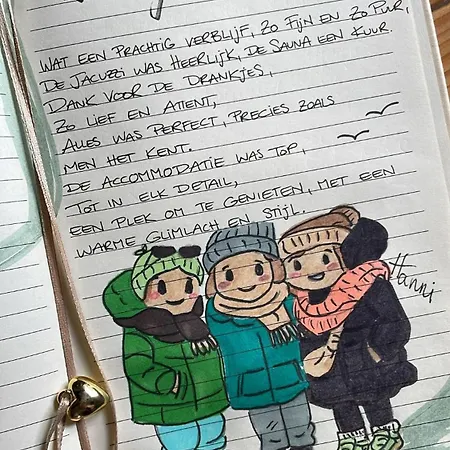 WAT EEN PRACHTIG VERBLIJF, ZO FIJN EN ZO PUUR,
DE JACUZZI WAS HEERLIJK, DE SAUNA EEN KUUR.
DANK VOOR DE DRANKJES,
ZO LIEF EN ATTENT,
ALLES WAS PERFECT, PRECIES ZOALS
MEN HET KENT.
DE ACCOMMODATIE WAS TOP,
TOT IN ELK DETAIL,
EEN PLEK OM TE GENIETEN, MET EEN
WARME GLIMLACH EN STIJL.
Hanni